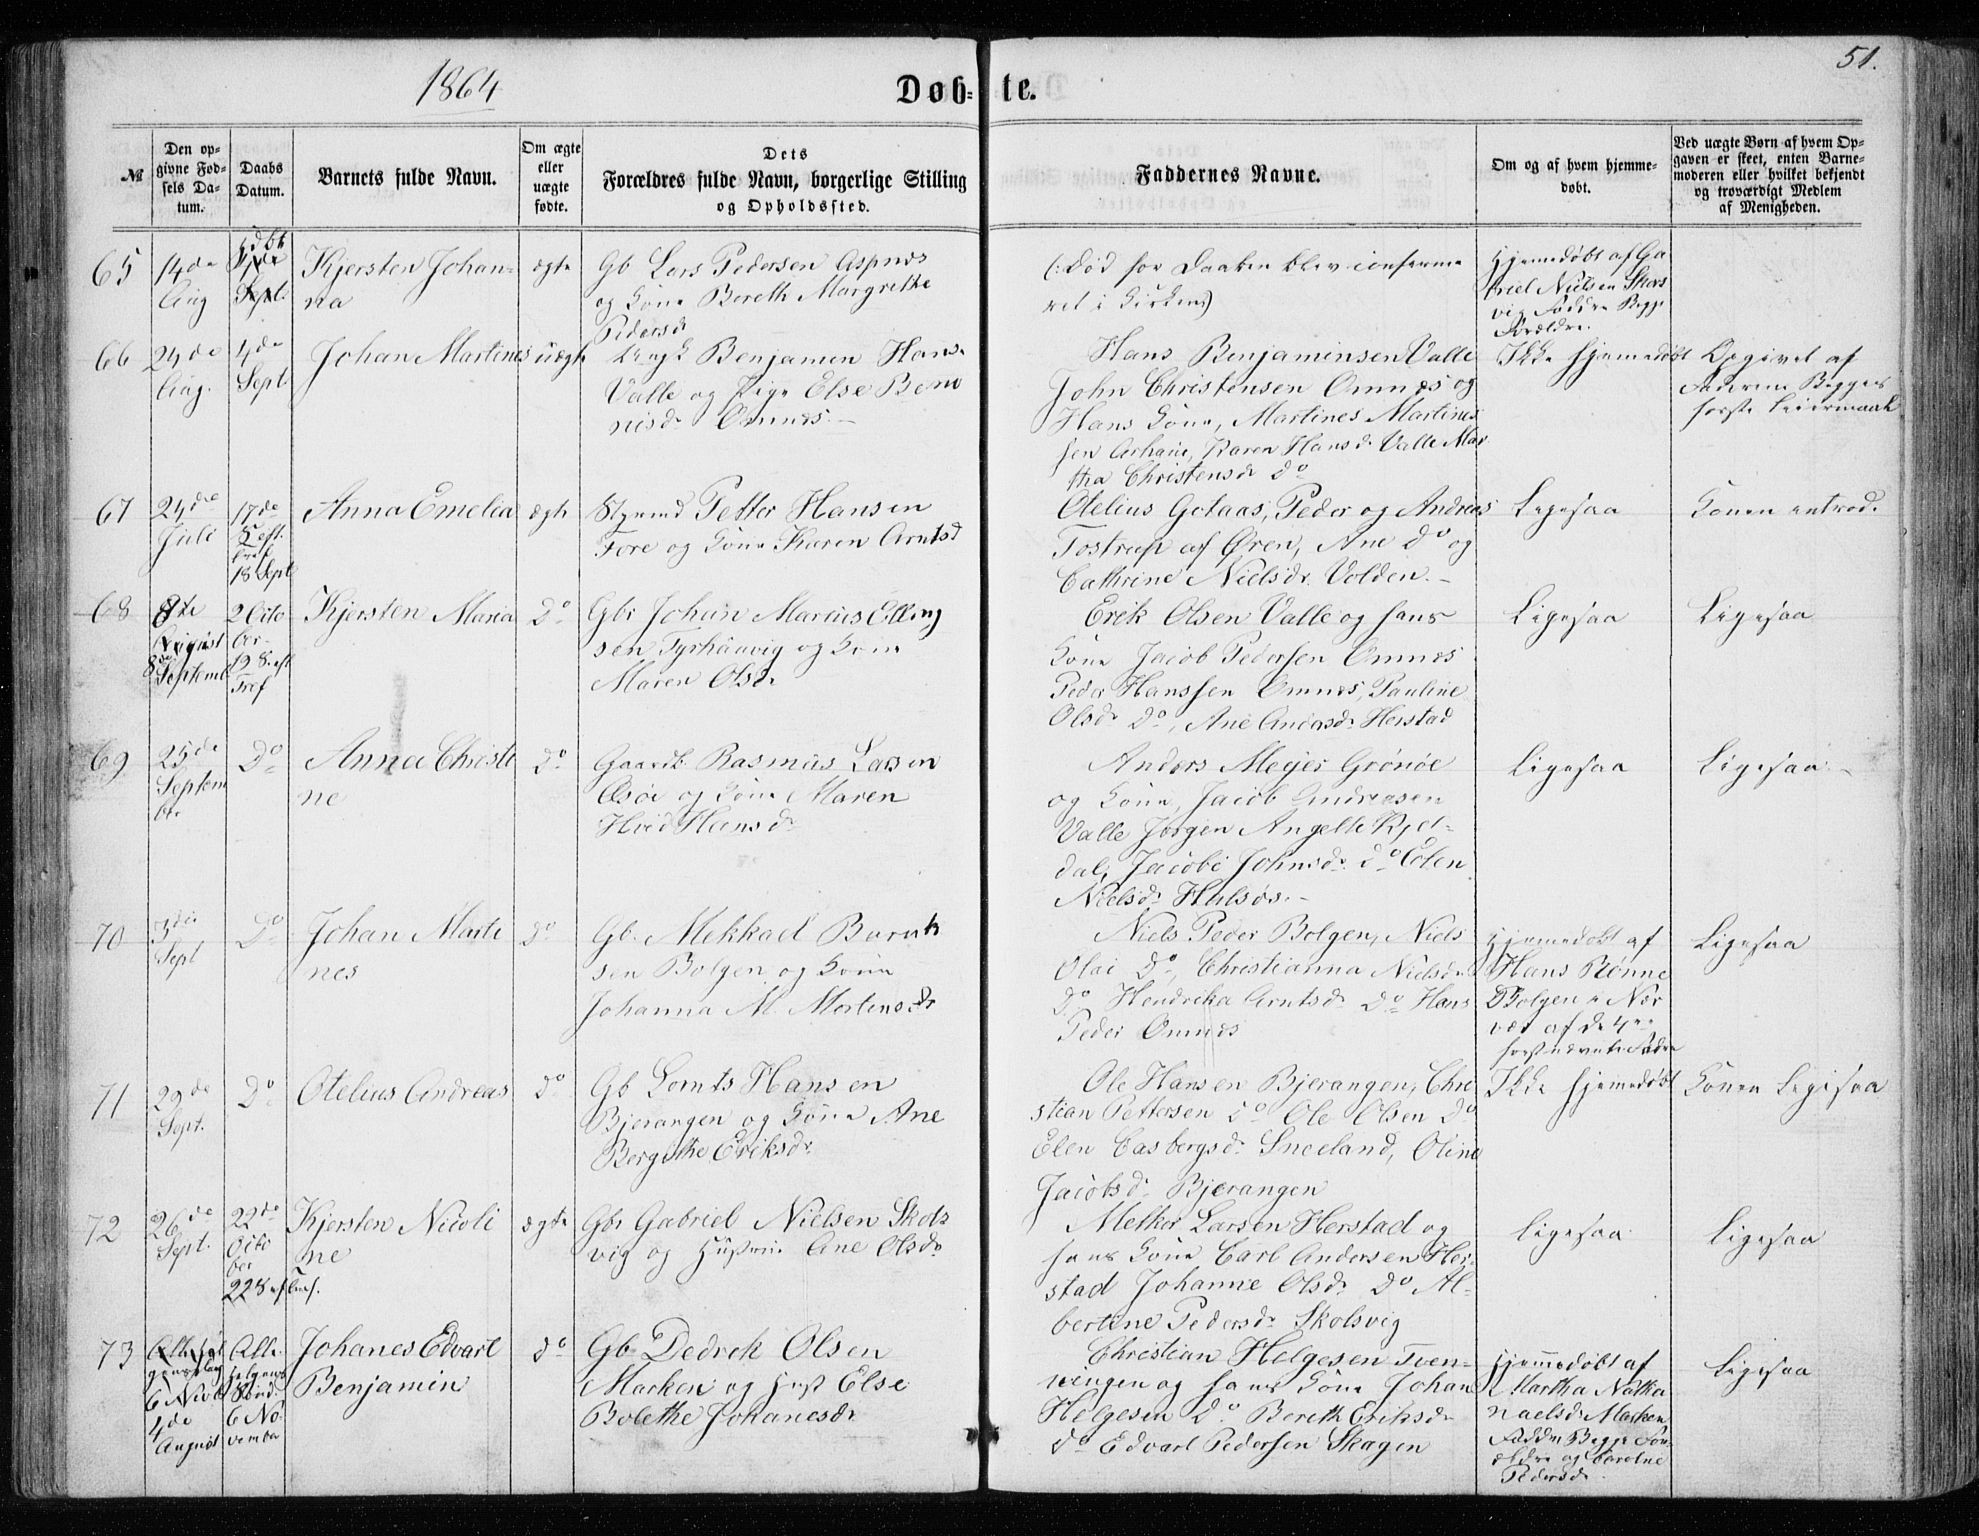 1864
Døb-
te.
51.
№
Den op-
givne Fød-
sels Da-
tum.
Daabs
Datum.
Barnets fulde Navn.
Om ægte
eller
uægte
fødte.
Dets
Forældres fulde Navn, borgerlige Stilling
og Opholdssted.
Faddernes Navne.
Om og af hvem hjemme-
døbt.
Ved uægte Børn af hvem Op-
gaven er skeet, enten Barne-
moderen eller hvilket bekjendt
og troværdigt Medlem
af Menigheden.
65
14de
Aug
Sept.
Kjersten Johan-
na
ægte
Gb Lars Pedersen Aspnes
og Kone Bereth Margrethe
Pedersd
(: Død før Daaben blev confirme
ret i Kirken)
Hjemedøbt af Ga
briel Nielsen Skols
vig Faddre Begge
Forældre.
66
24de
Aug.
4de
Sept
Johan Martines
uægte
Ungk Benjamin Hans.
Valle og Pige Else Beni
nisd. Omnes. -
Hans Benjaminsen Valle
John Christensen Omnes og
Hans Kone, Martines Martines
sen Arhaue, Karen Hansd. Valle Mar
tha Christensd Do
Ikke hjemedøbt
Opgivet af
Faderen Begges
første Leiermaal
67
24de
Juli
17de
S eft.
Tref
18 Sept
Anna Emelia
ægte
Styrmd Petter Hansen
Fore og Kone Karen Arntsd
Otelius Gotaas, Peder og Andreas
Tostrup af Øren, Ane Do og
Cathrine Nielsdr. Volden. -
Ligesaa
Konen introd.
68
8de
August
8de Septemb
2 Octo
ber
19 S. eft
Tref
Kjersten Maria
Do
Gbr Johan Marius Elling
sen Tyrhaavig og Kone
Maren Olsdr
Erik Olsen Valle og hans
Kone Jacob Pedersen Omnes
Peder Hanssen Omnes, Pauline
Olsdr Do, Ane Andersdr Herstad
Ligesaa
Ligesaa
69
25de
Septem
ber
Do
Anna Christi
ne
Do
Gaardb. Rasmus Larsen
Æsøe og Kone Maren
Hvid Hansdr
Anders Meyer Grønøe
og Kone, Jacob Andreasen
Valle Jørgen Angell Kjel-
dal, Jacobe Johnsdr. do Elen
Nielsdr Halsos. -
Ligesaa
Ligesaa -
70
3die
Sept
Do
Johan Marti
nes
Do
Gb. Mekkael Barnt
sen Bolgen og Kone
Johanna M. Mortensdr
Niels Peder Bolgen, Niels
Olai Do, Christianna Nielsdr
Do Hendrika Arntsdr Do Hans
Peder Omnes
Hjemedøbt af
Hans Rønne
Bolgen i Nær
vær af de 4re
førstnevnte Faddre
Ligesaa
71
29de
Sept.
Do
Otelius Andreas
Do
Gb Lornts Hansen
Bjerangen og Kone Ane
Bergithe Eriksdr
Ole Hansen Bjerangen, Chri
stian Pettersen do Ole Olsen do
Elen Casbergsdr Sneeland, Oline
Jacobsdr Bjerangen
Ikke hjemedøbt
Konen Ligesaa
72
26de
Sept.
22de
Octo
ber
22 S eft Tref.
Kjersten Nicoli
ne
ægte
Gbr Gabriel Nielsen Skols
vig og Hustrue Ane Olsdr
Melker Larsen Herstad og
hans Kone Carl Andersen Her
stad Johanne Olsdr Do Al-
bertine Pedersdr Skolsvig
Ligesaa
Ligesaa
73
6 Novb
4de
August
Alle
Helgens
Sønd.
6 No.
vember
Johanes Edvart
Benjamin
Do
Gb Dedrek Olsen
Marken og Hust Else
Bolethe Johanesdr
Christian Helgesen Tven-
vengen og hans Kone Johan
Helgesen Do Bereth Eriksdr
do Edvart Pedersen Skagen
Hjemmedøbt af
Martha Natha
naelsdr Marken
Faddre Begge For-
ældre og Caroline
Pedersdr
Ligesaa